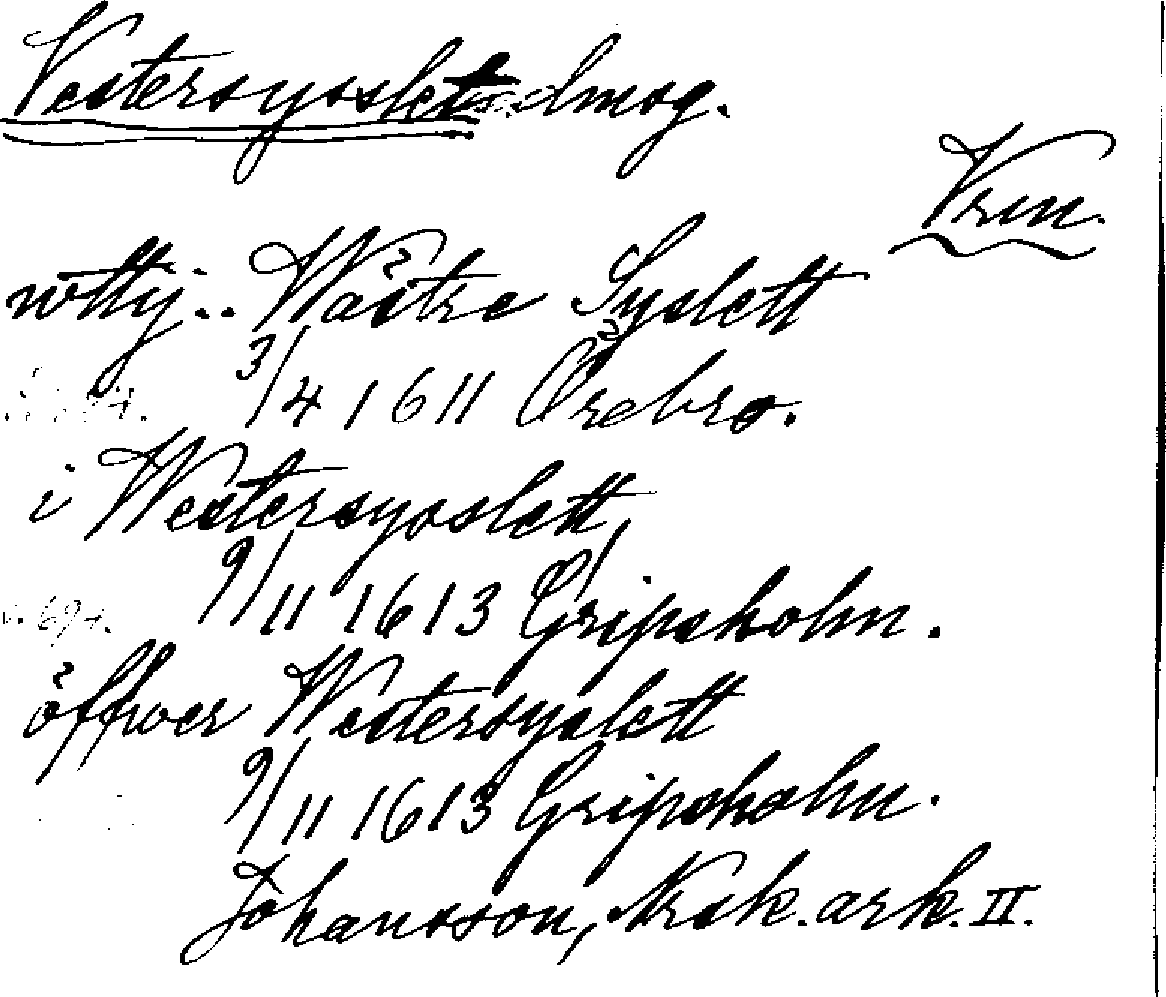 Vestersysslet
Vrm.
wthj.. Wästre Syslett
3/4 1611 Örebro.
i Westersysslett,
9/11 1613 Gripsholm.
öffwer Westersyslett
9/11 1613 Gripsholm.
Johansson, Norsk. ark. II.